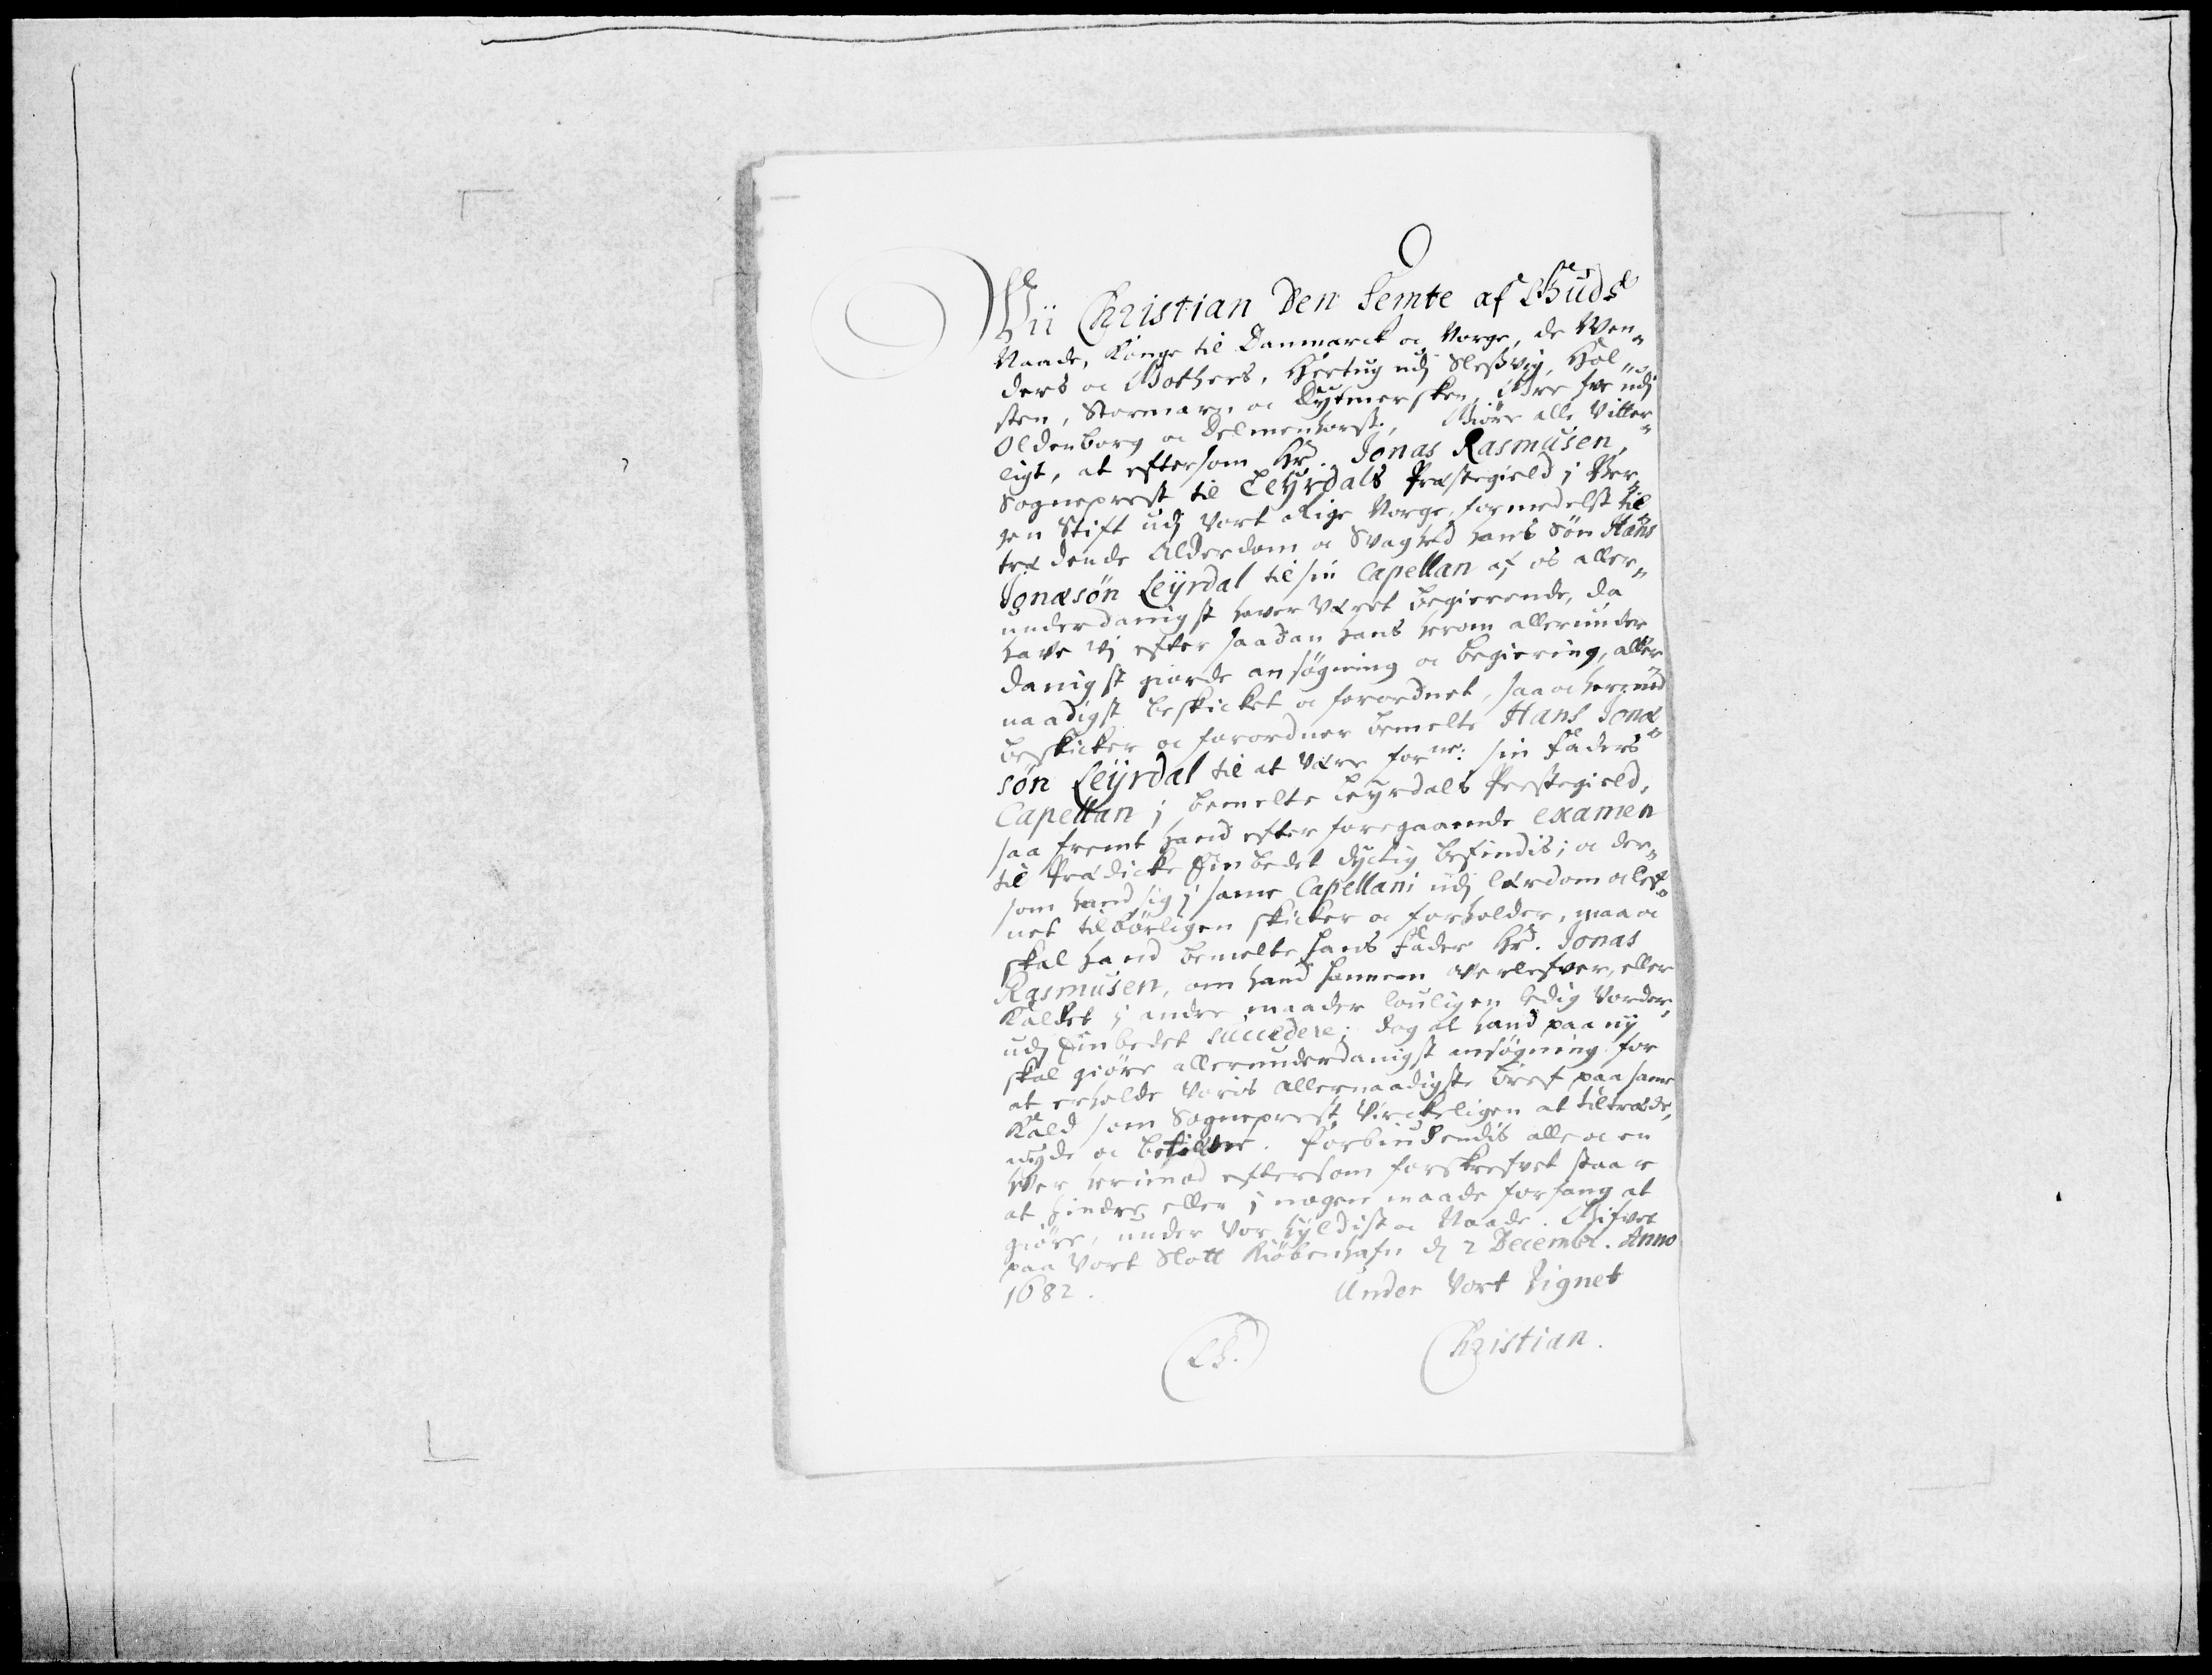 Wii Christian den Femte af Guds
Naade, Konge til Danmarck oc Norge, de Wen„
ders oc Gothers, Hertug udj Sleßvig, Hol„
sten, Stormarn oc Dytmersken, Grefve udj
Oldenborg oc Delmenhorst, Giöre alle Vitter„
ligt, at eftersom Hr. Jonas Rasmusen,
Sogneprest til Leyrdals Præstegield j Ber„
gen Stift udj Vort Rige Norge, formedelst til„
trædende Alderdom oc Svaghed hans Søn Hans
Jonæsøn Leyrdal til sin Capellan af os aller„
underdanigst haver Været begierende, da
have Vj efter saadan hans herom allerunder
danigst giorde ansøgning oc begiering, aller„
naadigst beskicket oc forordnet, saa oc hermed
beskicker oc forordner bemelte Hans Jonæ„
søn Leyrdal til at Være forne: sin Faders
Capellan j bemelte Leyrdals Prestegield,
saa fremt hand efter foregaaende examen
til Prædicke Embedet dyctig befindis; oc der„
som hand sig j same Capellani udj lærdom oc lef„
net tilbørligen skicker oc forholder, maa oc
skal hand bemelte hans Fader Hr. Jonas
Rasmusen, om hand hannem overlefver, eller
Kaldet j andre maader louligen ledig Vorder,
udj Embedet succedere; dog at hand paa ny
skal giöre allerunderdanigst ansøgning for
at erholde Voris allernaadigste bref paa same
Kald som Sogneprest Virckeligen at tiltræde,
nyde oc beholde. Forbiudendis alle oc en
hver herimod eftersom forskrefvet staar
at hindre eller j nogen maade forfang at
giöre, under Vor hyldist oc Naade. Gifvet
paa Vort Slott Kiöbenhafn dj 2 Decembr. Anno
1682.
Under Vort Signet
Christian.
LS.